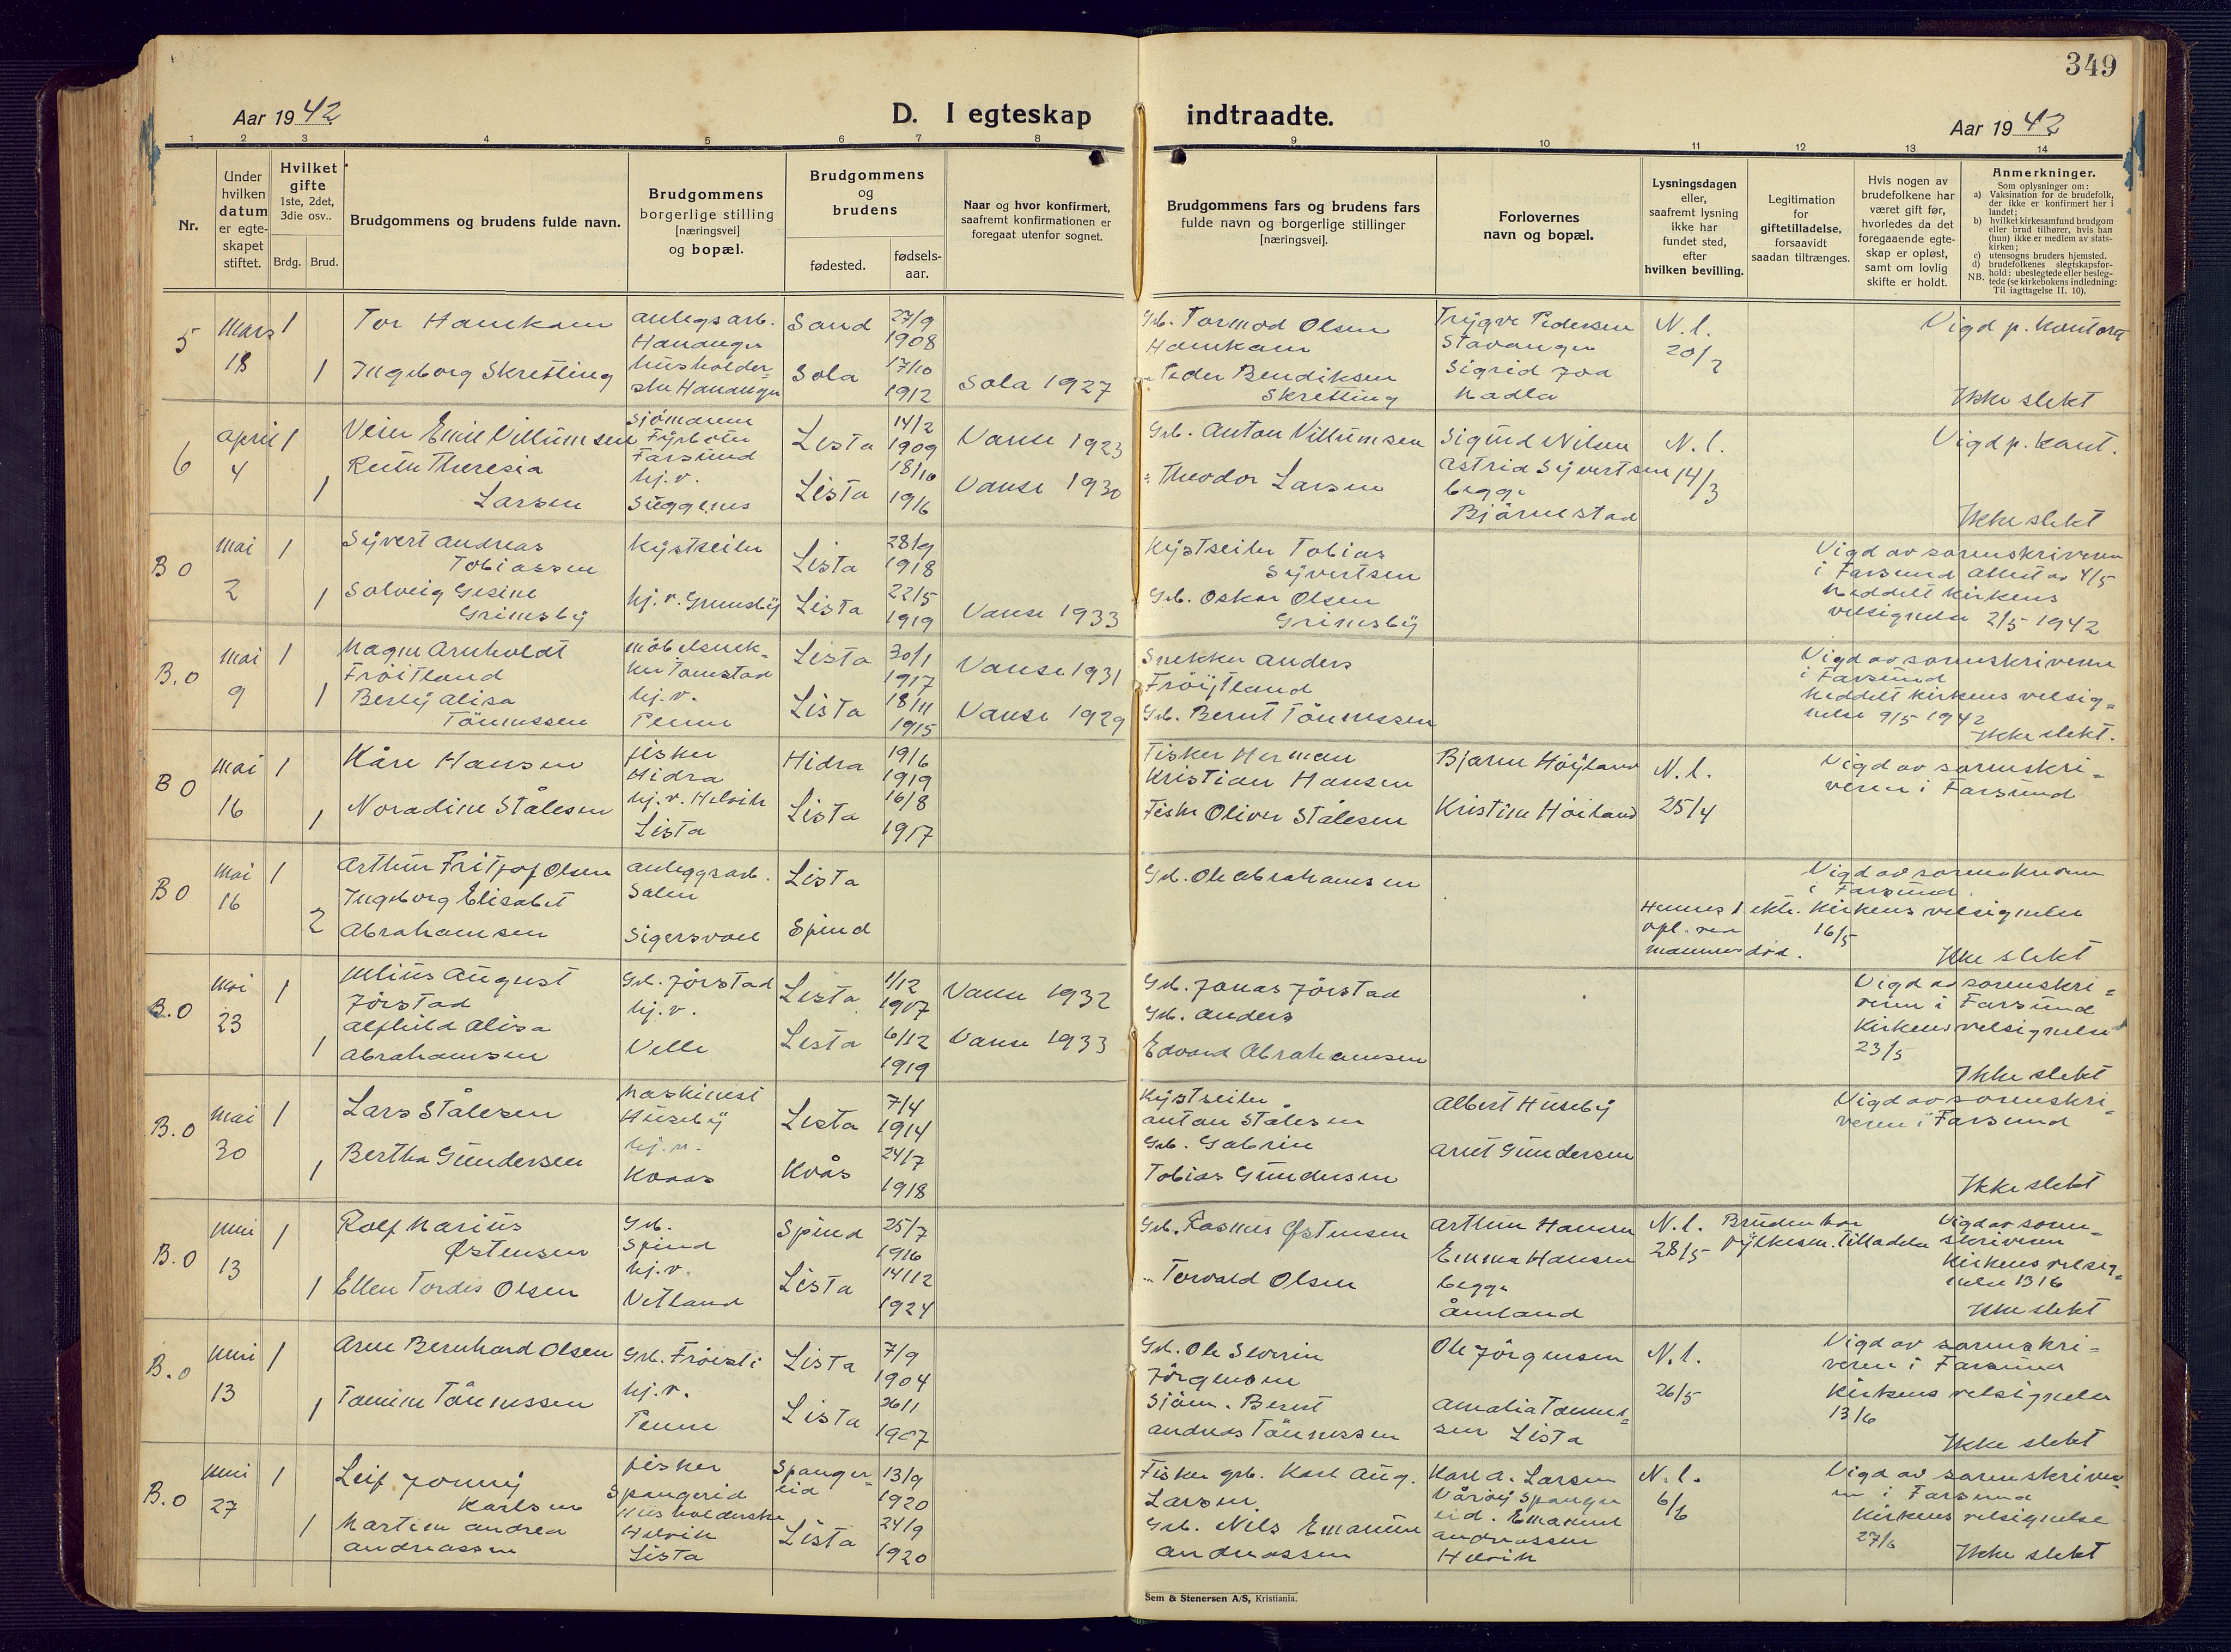 349
Aar 1942
D. I egteskap indtraadte.
Aar 1942
1 2 3 4 5 6 7 8 9 10 11 12 13 14
Nr.
Under hvilken datum er egteskapet stiftet.
Hvilket gifte 1ste, 2det, 3die osv..
Brdg. Brud.
Brudgommens og brudens fulde navn.
Brudgommens borgerlige stilling [næringsvei] og bopæl.
Brudgommens og brudens
fødested.
fødselsaar.
Naar og hvor konfirmert, saafremt konfirmationen er foregaat utenfor sognet.
Brudgommens fars og brudens fars fulde navn og borgerlige stillinger [næringsvei].
Forlovernes navn og bopæl.
Lysningsdagen eller, saafremt lysning ikke har fundet sted, efter hvilken bevilling.
Legitimation for giftetilladelse, forsaavidt saadan tiltrænges.
Hvis nogen av brudefolkene har været gift før, hvorledes da det foregaaende egteskap er opløst, samt om lovlig skifte er holdt.
Anmerkninger.
Som oplysninger om:
a) Vaksination for de brudefolk, der ikke er konfirmert her i landet;
b) hvilket kirkesamfund brudgom eller brud tilhører, hvis han (hun) ikke er medlem av statskirken;
c) utensogns bruders hjemsted.
d) brudefolkenes slegtskapsforhold: ubeslegtede eller beslegtede (se kirkebokens indledning: NB. Til iagttagelse II. 10).
5 Mars 18 1 1
Tor Hamkam
Ingeborg Skretting
anlegsarb.
Hananger
husholderske Hananger
Sand 27/9 1908
Sola 17/10 1912
Sola 1927
Grb. Tormod Olsen
Hamkam
" Peder Bendiksen
Skretting
Trygve Pedersen
Stavanger
Sigrid Joa
Madla
N.l.
20/2
Vigd p. kontoret
Ikke slekt
6 april 4 1 1
Veier Emil Villumsen
Ruth Theresia
Larsen
Sjømann
Farsund
hj.v.
Lista 14/2 1909
Lista 18/10 1916
Vanse 1923
Vanse 1930
Grb. Anton Villumsen
" Theodor Larsen
Sigurd Nilsen
Astrid Syvertsen
begge
Bjørnestad
N.l.
14/3
Vigd p. kont.
Ikke slekt
B O mai 2 1 1
Syvert Andreas
Tobiassen
Solveig Gesine
Grimsby
Kystseiler
hj.v. Grimsby
Lista 28/9 1918
Lista 22/5 1919
Vanse 1933
Kystseiler Tobias
Syvertsen
Grb. Oskar Olsen
Grimsby
Vigd av sorenskriveren
i Farsund attest av 4/5
Meddelt kirkens
velsignelse 2/5 1942
B.O mai 9 1 1
Magne Arnholdt
Frøitland
Berly Alisa
Tönnessen
møbelsnekker Tomstad
hj.v.
Penne
Lista 30/1 1917
Lista 18/11 1915
Vanse 1931
Vanse 1929
Snekker Anders
Frøijtland
Grb. Bernt Tönnessen
Vigd av sorenskriveren
i Farsund
Meddelt kirkens velsig=
nelse 9/5 1942
Ikke slekt.
B O mai 16 1 1
Kåre Hansen
Noradine Stålesen
fisker
Hidra
hj.v. Helvik
Lista
Hidra 19/6 1919
Lista 16/8 1917
Fisker Herman
Kristian Hansen
Fisker Oliver Stålesen
Bjarne Høyland
Kristine Høiland
N.l.
25/4
Vigd av sorenskri=
veren i Farsund
B O Mai 16 1 2
Arthur Fritjof Olsen
Ingeborg Elisabet
Abrahamsen
anleggsarb.
Salen
Sigersvoll
Lista
Spind
Grb. Ole Abrahamsen
Hennes 1 ekte.
opl. ved
mannens død.
Vigd av sorenskriveren
i Farsund.
Kirkens velsignelse
16/5
Ikke slekt
B.O Mai 23 1 1
Julius August
Jörstad
Alfhild Alisa
Abrahamsen
Grb. Jörstad
hj.v.
Velle
Lista 1/12 1907
Lista 6/12 1919
Vanse 1932
Vanse 1933
Grb. Jonas Jörstad
Grb. Anders
Edvard Abrahamsen
Vigd av sorenskri=
veren i Farsund
Kirkens velsignelse
23/5
Ikke slekt
B.O Mai 30 1 1
Lars Stålesen
Bertha Gundersen
Maskinist
Huseby
hj.v.
Kvaas
Lista 7/4 1914
Kvås 24/7 1918
Kystseiler
Anton Stålesen
Grb. Gabriel
Tobias Gundersen
Albert Huseby
Arnt Gundersen
Vigd av sorenskri=
veren i Farsund
Ikke slekt
B.O Juni 13 1 1
Rolf Marius
Østensen
Ellen Tordis Olsen
Grb.
Spind
hj.v.
Vetland
Spind 25/7 1916
Lista 14/12 1924
Grb. Rasmus Østensen
" Torvald Olsen
Arthur Hansen
Emma Hansen
begge
Åmland
N.l.
28/5
Bruden har
fylkesm. tilladelse
Vigd av soren=
skriveren
Kirkens velsig=
nelse 13/6
Ikke slekt
B.O Juni 13 1 1
Arne Bernhard Olsen
Tomine Tönnessen
Grb. Frøestl
hj.v.
Penne
Lista 7/9 1904
Lista 26/1 1907
Grb. Ole Severin
Jörgensen
Sjöm. Bernt
Andreas Tönnessen
Ole Jörgensen
Amalia Tönnes=
sen Lista
N.l.
26/5
Vigd av sorenskri=
veren i Farsund
Kirkens velsignelse
13/6
Ikke slekt
B.O Juni 27 1 1
Leif Jonny
Karlsen
Martine Andrea
Andreassen
fisker
Spangerid
Husholderske
Helvik
Lista
Spanger=
eid 13/9 1920
Lista 24/9 1920
Fisker grb. Karl Aug.
Larsen
Grb. Nils Emanuel
Andreassen
Karl A. Larsen
Vårøy Spanger
eid. Emanuel
Andreassen
Helvik
N.l.
6/6
Vigd av sorenskrive
ren i Farsund
Kirkens velsignelse
27/6
Ikke slekt
Sem & Stenersen A/S, Kristiania.